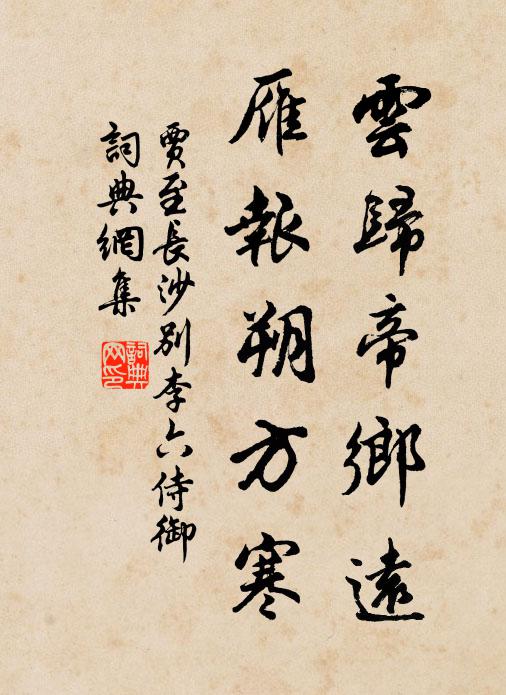 雲歸帝鄉遠
雁報朔方寒
賈至長沙別李六侍御
詞典網集
詞典网印